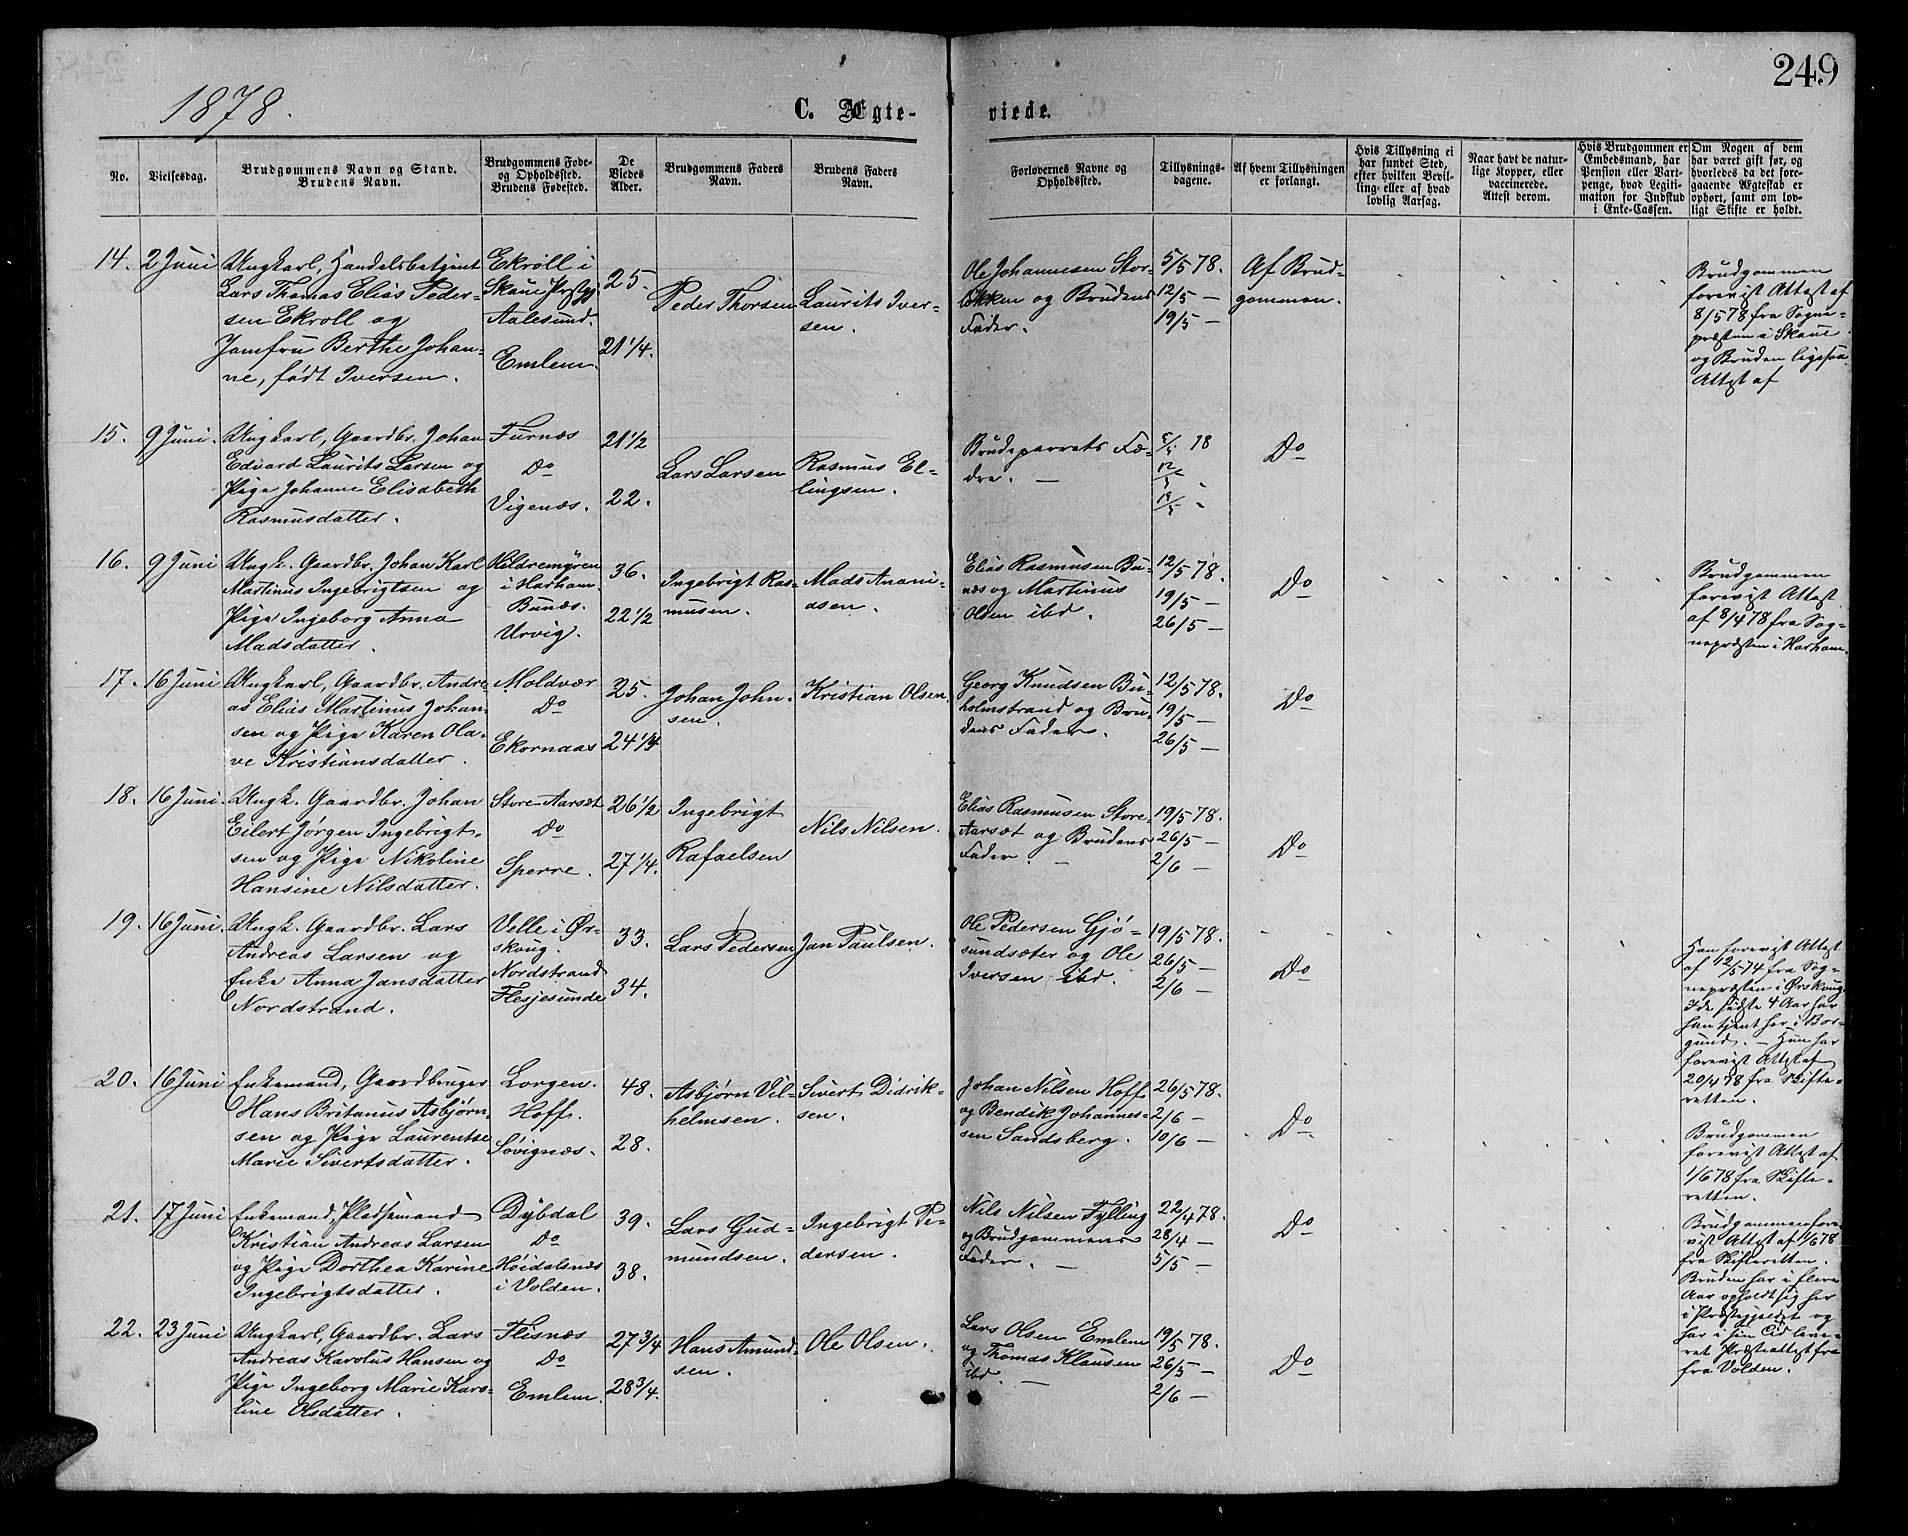 249
1878.
C. Ægte-
viede.
No.
Vielsesdag.
Brudgommens Navn og Stand.
Brudens Navn.
Brudgommens Føde-
og Opholdssted.
Brudens Fødested.
De
Viedes
Alder.
Brudgommens Faders
Navn.
Brudens Faders
Navn.
Forlovernes Navne og
Opholdssted.
Tillysnings-
dagene.
Af hvem Tillysningen
er forlangt.
Hvis Tillysning ei
har fundet Sted,
efter hvilken Bevil-
ling eller af hvad
lovlig Aarsag.
Naar havt de natur-
lige Kopper, eller
vaccinerede.
Attest derom.
Hvis Brudgommen er
Embedsmand, har
Pension eller Vart-
penge, hvad Legiti-
mation for Indskud
i Enke-Cassen.
Om Nogen af dem
har været gift før, og
hvorledes da det fore-
gaaende Ægteskab er
ophørt, samt om lov-
ligt Skifte er holdt.
14.
2 Juni
Ungkarl, Handelsbetjent
Lars Thomas Elias Peder-
sen Ekroll og
Jomfru Berthe Johan-
ne, født Iversen.
Ekroll i
Skaue Prstgj.
Aalesund.
Emlem.
25.
21 1/4.
Peder Thorsen
Laurits Iver-
sen.
Ole Johannesen Stor-
løkken og Brudens
Fader.
5/5 78.
12/5 —
19/5 —
Af Brud-
gommen.
Brudgommen
forevist Attest af
8/5 78 fra Sogne-
præsten i Skaue
og Bruden ligesaa
Attest af
15.
9 Juni.
Ungkarl, Gaardbr. Johan
Edvard Laurits Larsen og
Pige Johanne Elisabeth
Rasmusdatter.
Furnæs
Do
Vigenæs.
21 1/2
22.
Lars Larsen
Rasmus El-
lingsen.
Brudeparrets Fæ-
dre. —
5/5 78
12/5 "
19/5 "
Do
16.
9 Juni
Ungk. Gaardbr. Johan Karl
Martinus Ingebrigtsen og
Pige Ingeborg Anna
Madsdatter.
Hildremyren
i Harham.
Bunæs.
Urvig.
36.
22 1/2
Ingebrigt Ras-
musen.
Mads Anani-
asen.
Elias Rasmusen Bu-
næs og Martinus
Olsen ibd.
12/5 78.
19/5 —
26/5 —
Do
Brudgommen
forevist Attest
af 8/4 78 fra Sog-
nepræsten i Harham.
17.
16 Juni
Ungkarl, Gaardbr. Andre-
as Elias Martinus Johan-
sen og Pige Karen Ola-
ve Kristiansdatter.
Moldvær
Do
Ekornaas
25.
24 1/4
Johan John-
sen.
Kristian Olsen
Georg Knudsen Bu-
holmstrand og Bru-
dens Fader.
12/5 78.
19/5 —
26/5 —
Do
18.
16 Juni.
Ungk. Gaardbr. Johan
Eilert Jørgen Ingebrigt-
sen og Pige Nikoline
Hansine Nilsdatter.
Store-Aarsæt
Do
Sperre.
26 1/2
27 1/4.
Ingebrigt
Rafaelsen
Nils Nilsen.
Elias Rasmusen Store-
Aarsæt og Brudens
Fader. —
19/5 78.
26/5 —
2/6 —
Do
19.
16 Juni.
Ungk. Gaardbr. Lars
Andreas Larsen og
Enke Anna Jansdatter
Nordstrand.
Velle i Ør-
skoug.
Nordstrand
Flesjesunde
33.
34.
Lars Pedersen
Jan Paulsen.
Ole Pedersen Gjø-
sundsæter og Ole
Iversen ibd.
19/5 78.
26/5 —
2/6 —
Do
Han forevist Attest
af 12/5 74 fra Sog-
nepræsten i Ørskoug.
I de sidste 4 Aar har
han tjent her i Bor-
gund. — Hun har
forevist Attest af
20/4 78 fra Skifte-
retten.
20.
16 Juni
Enkemand, Gaardbruger
Hans Britanus Asbjørn-
sen og Pige Laurentse
Marie Sivertsdatter.
Lorgen.
Hoff.
Søvignæs.
48.
28.
Asbjørn Vil-
helmsen.
Sivert Didrik-
sen.
Johan Nilsen Hoff
og Bendik Johannes-
sen Sandsberg.
26/5 78.
2/6 —
10/6 —
Do
Brudgommen
forevist Attest af
1/6 78 fra Skifte-
retten.
21.
17 Juni
Enkemand, Pladsemand
Kristian Andreas Larsen
og Pige Dorthea Karine
Ingebrigtsdatter.
Dybdal
Do
Høidalsnæs
i Volden.
39.
38.
Lars Gud-
mundsen.
Ingebrigt Pe-
dersen.
Nils Nilsen Fylling
og Brudgommens
Fader. —
22/4 78.
28/4 —
5/5 —
Do
Brudgommen fore-
vist Attest af 1/6 78
fra Skifteretten.
Bruden har i flere
Aar opholdt sig her
i Præstegjeldet og
har i sin Tid leve-
ret Præsteattest fra
fra Volden.
22.
23 Juni
Ungkarl, Gaardbr. Lars
Andreas Karolus Hansen og
Pige Ingeborg Marie Karo-
line Olsdatter.
Flisnæs
Do
Emlem.
27 3/4
28 3/4.
Hans Amund-
sen.
Ole Olsen.
Lars Olsen Emlem
og Thomas Klausen
ibd. —
19/5 78.
26/5 —
2/6 —
Do